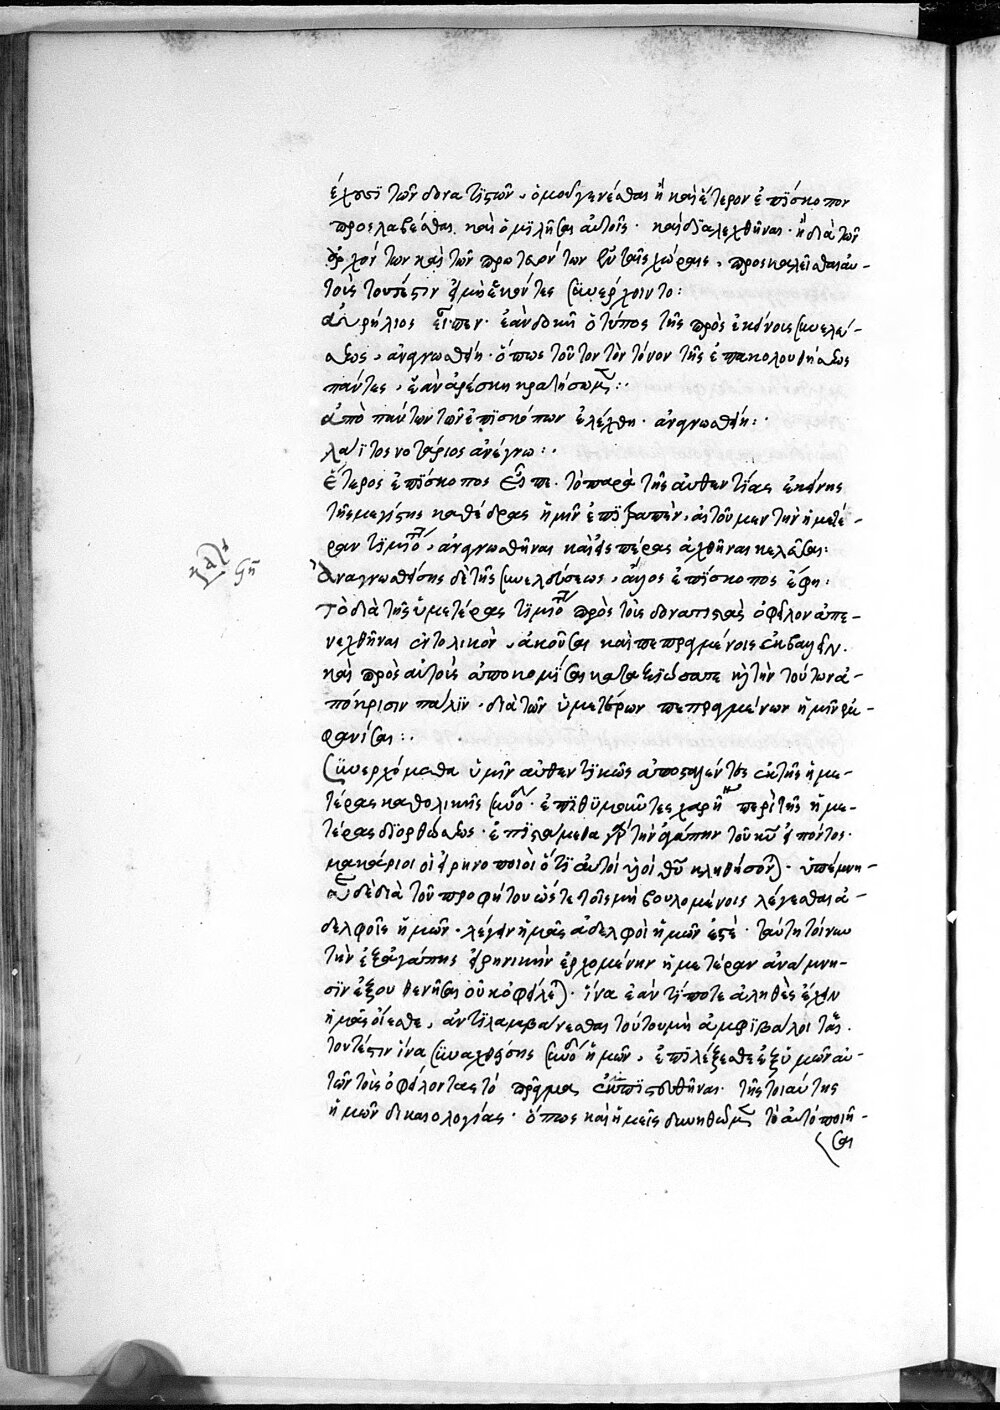 ἔχουσι τῶν δονατιστῶν, ὁμοῦ γενέσθαι ἢ καὶ ἕτερον ἐπίσκοπον
προσλαβέσθαι. καὶ ὁμιλῆσαι αὐτοῖς. καὶ διαλεχθῆναι. ἢ διὰ τῶν
ἀρχόντων καὶ τῶν πρωτευόντων ἐν ταῖς χώραις, προσκαλεῖσθαι αὐ-
τοὺς τουτέστιν εἰ μὴ ἑκόντες συνέρχοιντο:
Αὐρήλιος εἶπεν. ἐὰν δοκῇ ὁ τύπος τῆς πρὸς ἐκείνους συνελεύ-
σεως, ἀναγνωσθείη. ὅπως τοῦτον τὸν τόνον τῆς ἐπακολουθήσεως
πάντες, ἐὰν ἀρέσκῃ κρατήσωμεν:
ἀπὸ πάντων τῶν ἐπισκόπων ἐλέχθη. ἀναγνωσθείη:
λαῖτος νοτάριος ἀνέγνω:
Ἕτερος ἐπίσκοπος εἶπε. τὸ παρὰ τῆς αὐθεντίας ἐκείνης
τῆς μεγίστης καθέδρας ἡμῖν ἐπιτραπὲν, αἰτοῦμεν τὴν ἡμετέ-
ραν τιμιότητα, ἀναγνωσθῆναι καὶ εἰς πέρας ἀχθῆναι κελεῦσαι:
Ἀναγνωσθείσης δὲ τῆς συνελεύσεως, ἅγιος ἐπίσκοπος ἔφη:
Τὸ διὰ τῆς ὑμετέρας τιμιότητος πρὸς τοὺς δονατιστὰς ὀφεῖλον ἀπε-
νεχθῆναι ἐντολικὸν, ἀκοῦσαι καὶ πεπραγμένοις ἐκβαλεῖν.
καὶ πρὸς αὐτοὺς ἀποκομίσαι καταξιώσατε καὶ τὴν τούτων ἀ-
πόκρισιν πάλιν. διὰ τῶν ὑμετέρων πεπραγμένων ἡμῖν ἐμ-
φανίσαι:
Συνερχόμεθα ὑμῖν αὐθεντικῶς ἀποσταλέντες ἐκ τῆς ἡμε-
τέρας καθολικῆς συνόδου. ἐπιθυμοῦντες χαρῆναι περὶ τῆς ἡμε-
τέρας διορθώσεως. ἐπιστάμεθα γὰρ τὴν ἀγάπην τοῦ κυ εἰπόντος.
μακάριοι οἱ εἰρηνοποιοὶ ὅτι αὐτοὶ υἱοὶ θυ κληθήσονται. ὑπέμνη-
σε δὲ διὰ τοῦ προφήτου ὥστε τοῖς μὴ βουλομένοις λέγεσθαι ἀ-
δελφοῖς ἡμῶν. λέγειν ἡμᾶς ἀδελφοὶ ἡμῶν ἐστὲ. ταύτη τοίνυν
τὴν ἐξ ἀγάπης εἰρηνικὴν ἐρχομένην ἡμετέραν ἀνάμνη-
σιν ἐξουθενῆσαι οὐκ ὀφείλετε. ἵνα ἐάν τί ποτε ἀληθὲς ἔχειν
ἡμᾶς οἴεσθε, ἀντιλαμβάνεσθαι τούτου μὴ ἀμφιβάλοιτε.
τουτέστιν ἵνα συναχθείσης συνόδου ἡμῶν, ἐπιλέξεσθε ἐξ ὑμῶν αὐ-
τῶν τοὺς ὀφείλοντας τὸ πρᾶγμα ἐμπιστευθῆναι. τῆς τοιαύτης
ἡμῶν δικαιολογίας. ὅπως καὶ ἡμεῖς δυνηθῶμεν τὸ αὐτὸ ποιῆ-
σαι